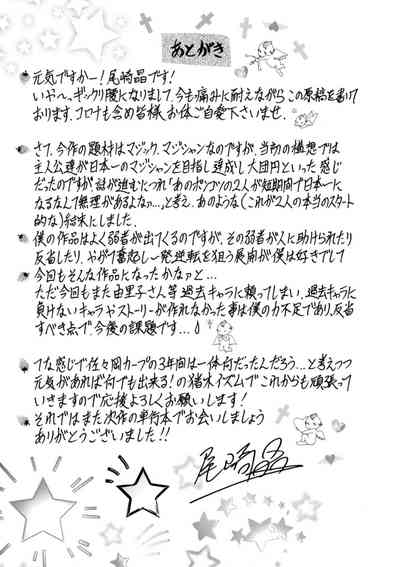 あとがき
元気ですかー!尾崎晶です!
いや〜、ギックリ腰になりまして、今も痛みに耐えながらこの原稿を書いて
おります。コロナも含め皆様、お体ご自愛下さいませ。
さて、今作の題材はマジック、マジシャンなのですが、当初の構想では
主人公達が日本一のマジシャンを目指し達成し大団円といった感じ
だったのですが、話が進むにつれ「あのポンコツの2人が短期間で日本一に
になるなんて無理があるよなァ…」と考え、あのような(これが2人の本当のスタート
的な)結末にしました。
僕の作品はよく弱者が出てくるのですが、その弱者が人に助けられたり
反省したり、やがて奮起し一発逆転を狙う展開が僕は好きでして
今回もそんな作品になったかなァと…
ただ今回もまた由里子さん等過去キャラに頼ってしまい、過去キャラに
負けないキャラやストーリーが作れなかった事は僕の力不足であり、反省
すべき点で、今後の課題です…
てな感じで佐々岡カープの3年間は一体何だったんだろう…と考えつつ
元気があれば何でも出来る!の猪木イズムでこれからも頑張って
いきますので応援よろしくお願いします!
それではまた次作の単行本でお会いしましょう
ありがとうございました!!
尾崎晶